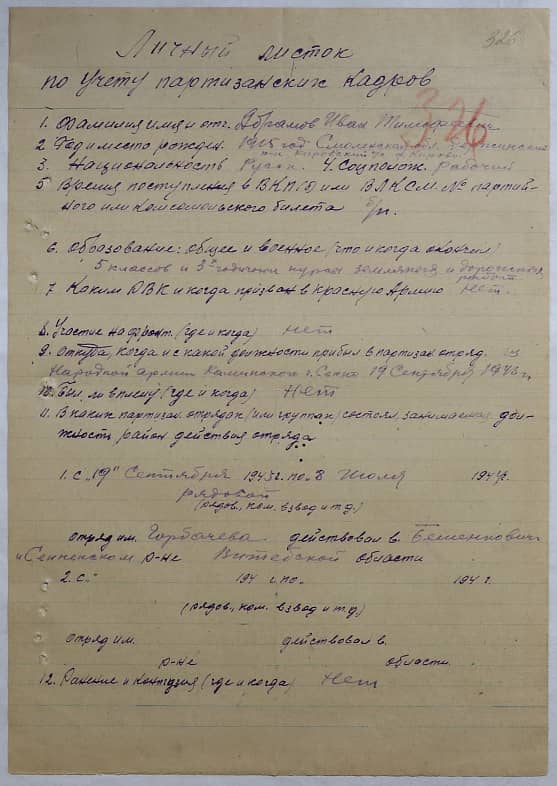 326
Личный листок
по учету партизанских кадров
326
1. Фамилия имя и отч. Абрамов Иван Тимофеевич
2. Год и место рожден. 1915 год Смоленская обл.
3. Национальность Русск. 4. Соцполож. Рабочий
5 Время поступления в ВКП(б) или ВЛКСМ. № партий-
ного или комсомольского билета б/п.
6. Образование: общее и военное (что и когда окончил)
5 классов и 3х годичные курсы земляного и дорожного
7. Каким РВК и когда призван в Красную Армию нет.
8. Участие на фронт. (где и когда) нет
9. Откуда, когда и с какой должности прибыл в партизан. отряд. из
Народной армии Каминского г. Сенно 19 Сентября 1943 г.
10. Был ли в плену (где и когда) Нет
11. В каких партизан. отрядах (или группах) состоял, занимаемая дол-
жность, район действия отряда
1. с „19" Сентября 1943 г. по „8 Июля 1944г.
рядовой
(рядов., ком. взвод и т.д.)
отряд им. Горбачева. действовал в. Бешенкович
и Сенненском р-не Витебской области
2. с.„ 194 г. по. 194 г.
(рядов., ком. взвод и т.д.)
отряд им. действовал в.
р-не области.
12. Ранение и контузия (где и когда) Нет